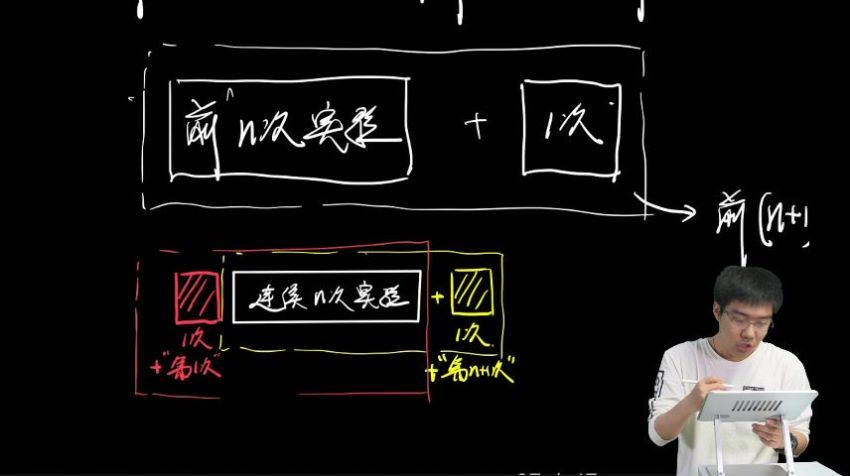 前n次实验 + 1次
前(n+1
连续n次实验 +
1次 1次
+"第1次" +"第n+1次"